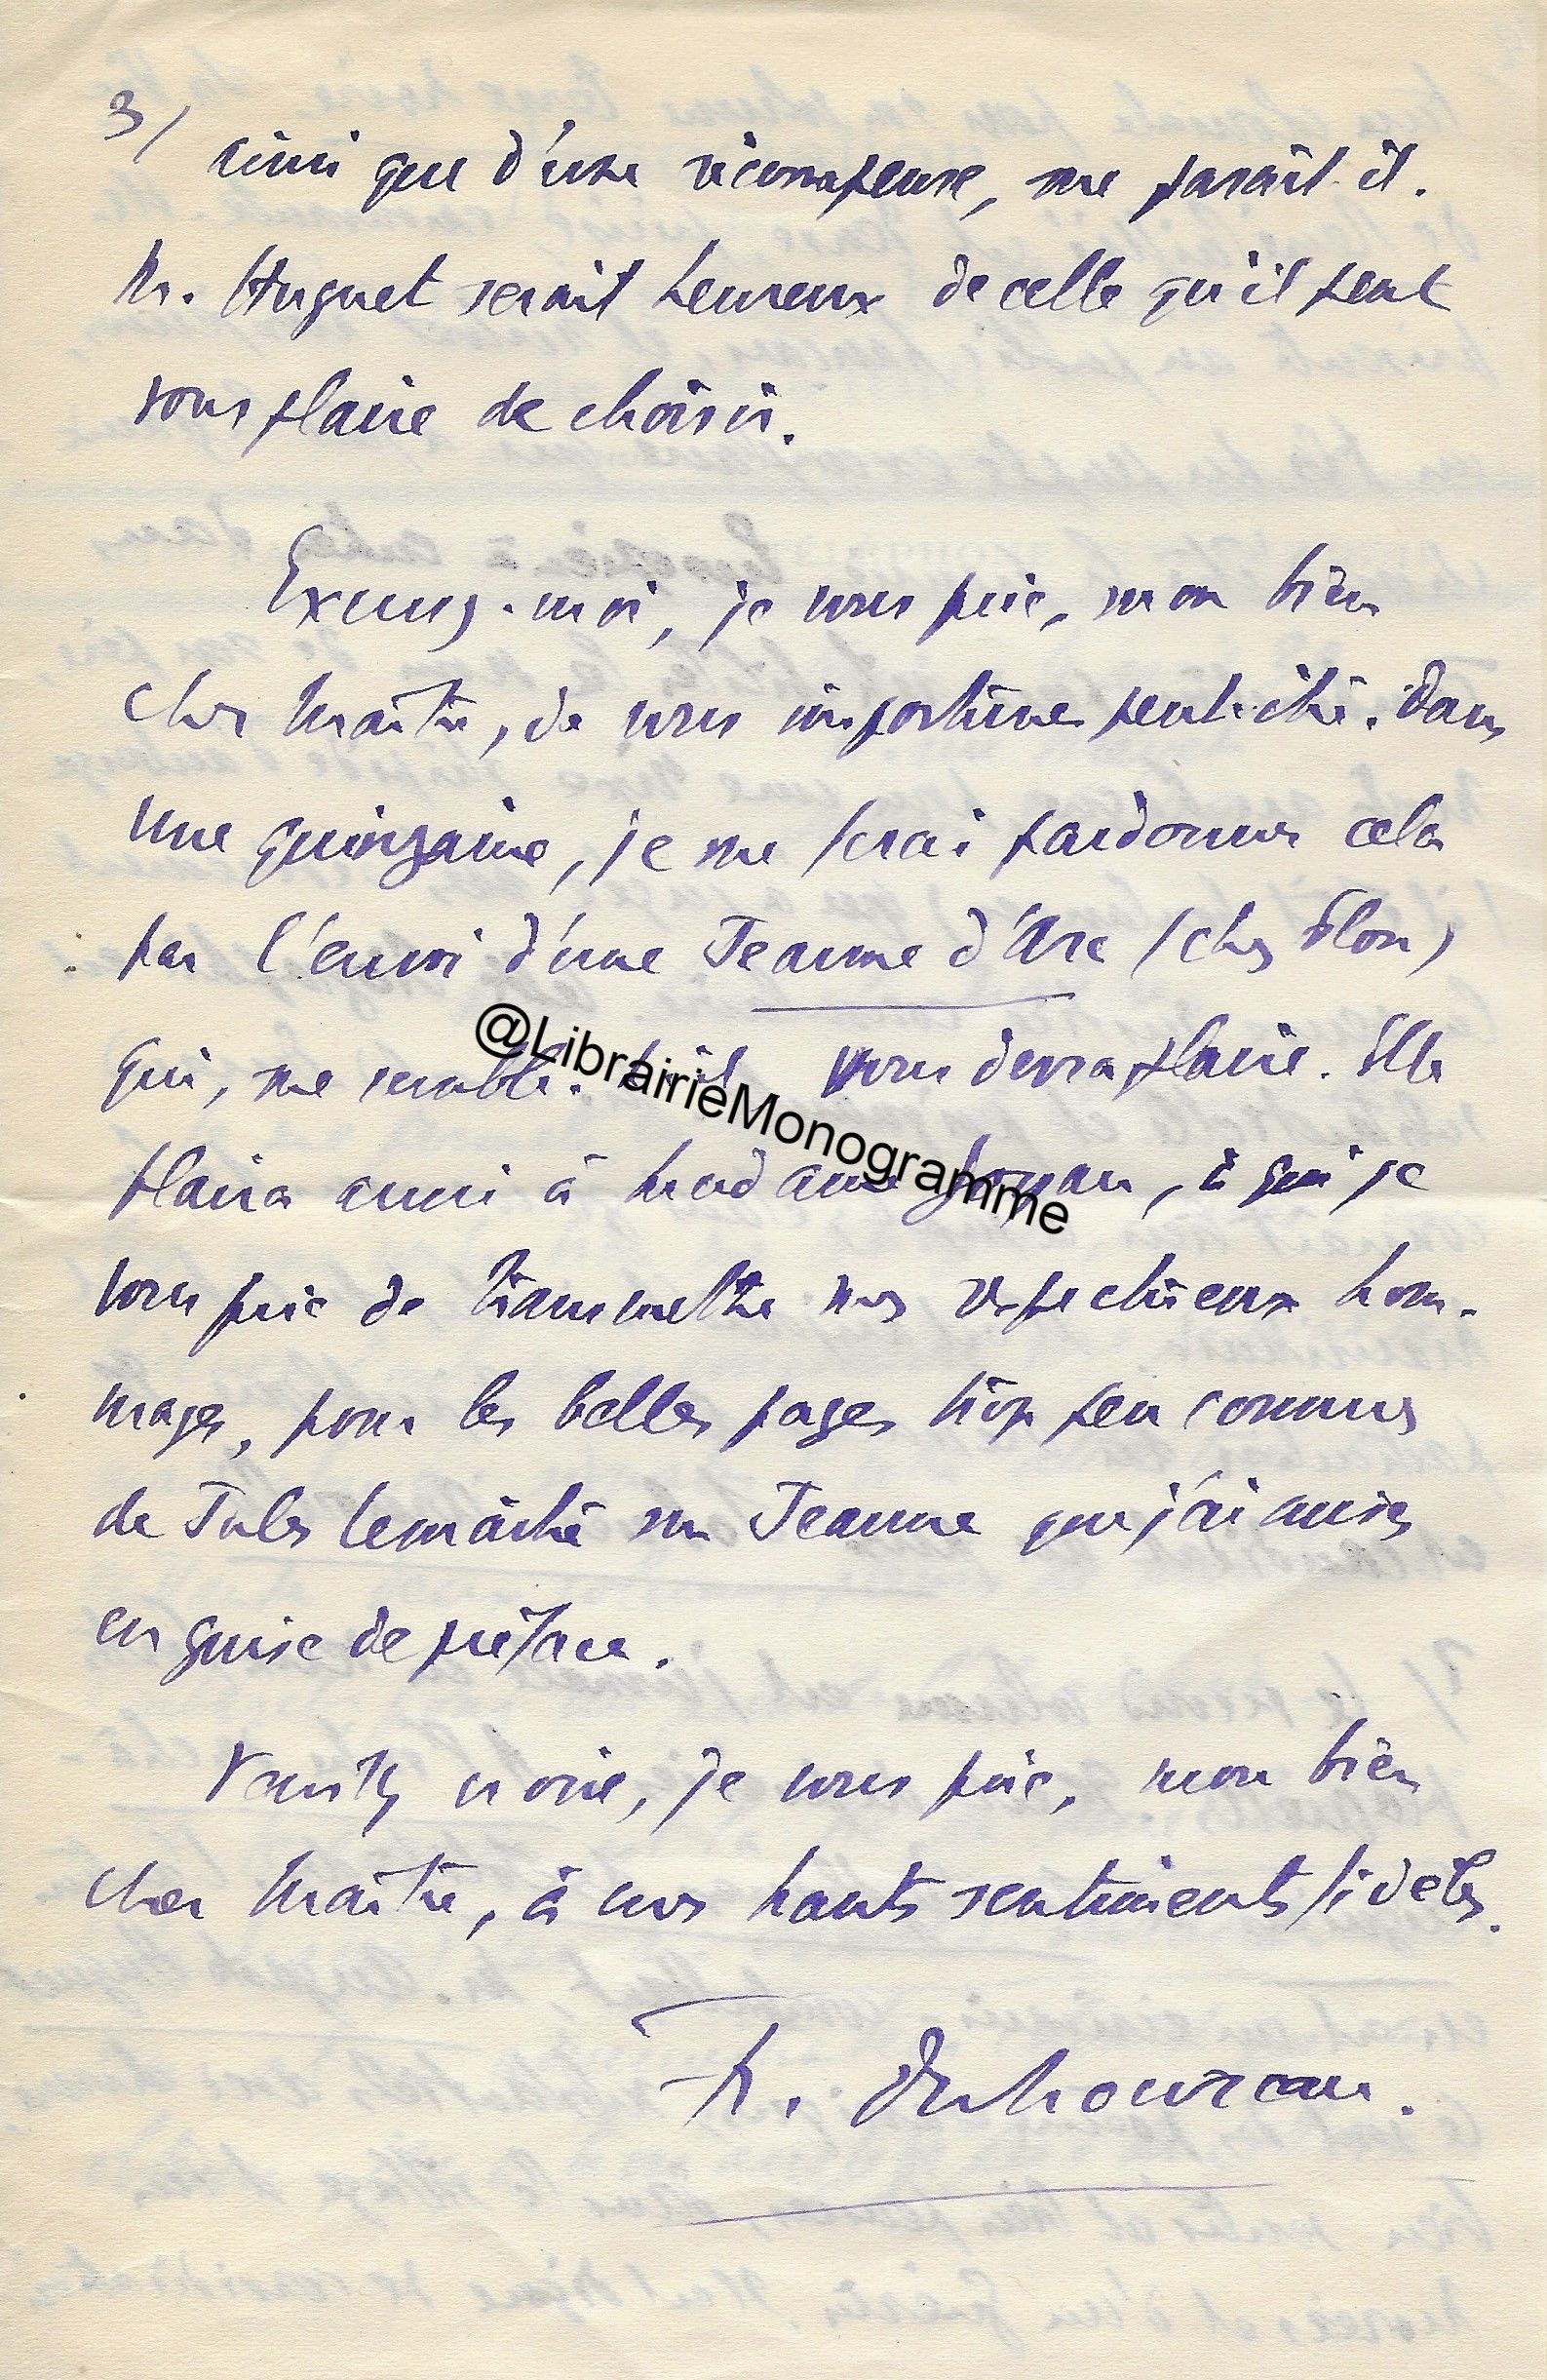 3/ ainsi que d'une récompense, me paraît-il.
M. Huguet serait heureux de celle qu'il peut
vous plaire de choisir.
Excusez-moi, je vous prie, mon bien
cher Maître, de vous importuner peut-être. Dans
une quinzaine, je me ferai pardonner cela
par l'envoi d'une Jeanne d'Arc (chez Plon)
qui, me semble-t-il vous devra plaire. Elle
plaira aussi à Madame, à qui je
vous prie de transmettre mes respectueux hom-
mages, pour les belles pages trop peu connues
de Jules Lemaître sur Jeanne que j'ai mises
en guise de préface.
Veuillez croire, je vous prie, mon bien
cher Maître, à mes hauts sentiments fidèles.
F. Duhourcau.
@LibrairieMonogramme